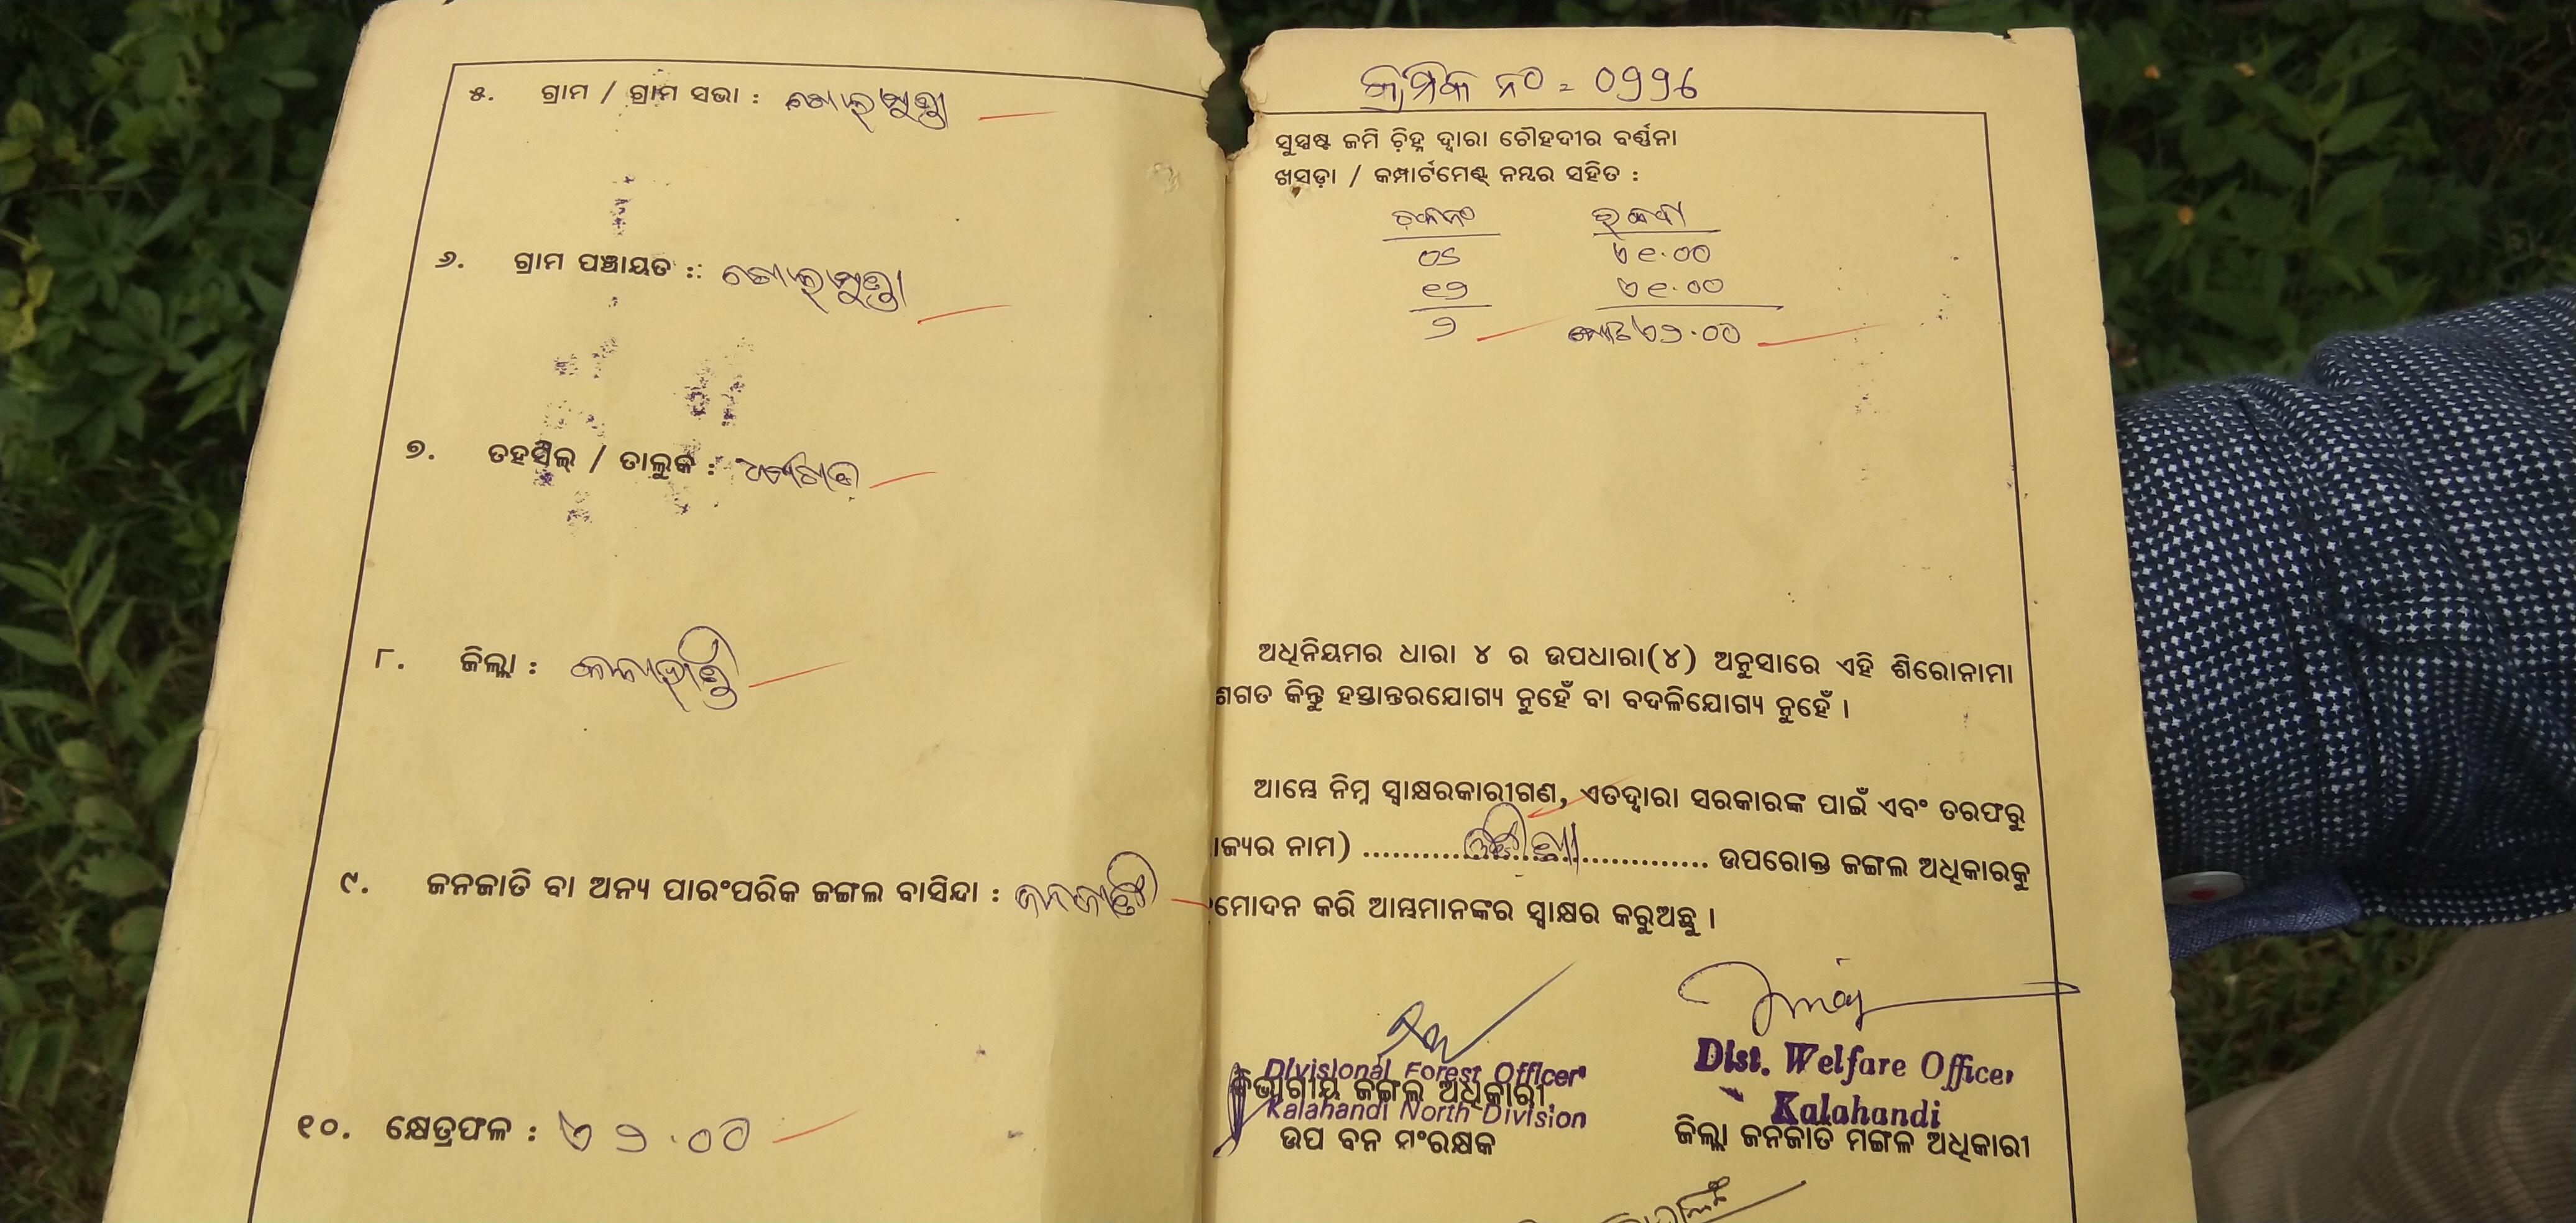 ୫. ଗ୍ରାମ / ଗ୍ରାମ ସଭା : ଗୋଲମୁଣ୍ଡା
୬. ଗ୍ରାମ ପଞ୍ଚାୟତ :: ଗୋଲମୁଣ୍ଡା
୭. ତହସିଲ୍ / ତାଲୁକ : ଧର୍ମଗଡ
୮. ଜିଲ୍ଲା : କଳାହାଣ୍ଡି
୯. ଜନଜାତି ବା ଅନ୍ୟ ପାରଂପରିକ ଜଙ୍ଗଲ ବାସିନ୍ଦା : ଜନଜାତି
୧୦. କ୍ଷେତ୍ରଫଳ : ଏ ୨.୦୦
କ୍ରମିକ ନଂ = ୦୨୨୬
ସୁସ୍ପଷ୍ଟ ଜମି ଚିହ୍ନ ଦ୍ୱାରା ଚୌହଦୀର ବର୍ଣ୍ଣନା
ଖସଡ଼ା / କମ୍ପାର୍ଟମେଣ୍ଟ୍ ନମ୍ବର ସହିତ :
ରକବା
୦୫ ଏ ୧.୦୦
୧୨ ଏ ୧.୦୦
୨ ମୋଟ ଏ ୨.୦୦
ଅଧିନିୟମର ଧାରା ୪ ର ଉପଧାରା(୪) ଅନୁସାରେ ଏହି ଶିରୋନାମା
ଶଗତ କିନ୍ତୁ ହସ୍ତାନ୍ତରଯୋଗ୍ୟ ନୁହେଁ ବା ବଦଳିଯୋଗ୍ୟ ନୁହେଁ ।
ଆମ୍ଭେ ନିମ୍ନ ସ୍ୱାକ୍ଷରକାରୀଗଣ, ଏତଦ୍ୱାରା ସରକାରଙ୍କ ପାଇଁ ଏବଂ ତରଫରୁ
ାଜ୍ୟର ନାମ) ........ଓଡିଶା........ ଉପରୋକ୍ତ ଜଙ୍ଗଲ ଅଧିକାରକୁ
ୁମୋଦନ କରି ଆମ୍ଭମାନଙ୍କର ସ୍ୱାକ୍ଷର କରୁଅଛୁ ।
Divisional Forest Officer
ବିଭାଗୀୟ ଜଙ୍ଗଲ ଅଧିକାରୀ,
Kalahandi North Division
ଉପ ବନ ସଂରକ୍ଷକ
Dist. Welfare Officer
Kalahandi
ଜିଲ୍ଲା ଜନଜାତି ମଙ୍ଗଳ ଅଧିକାରୀ